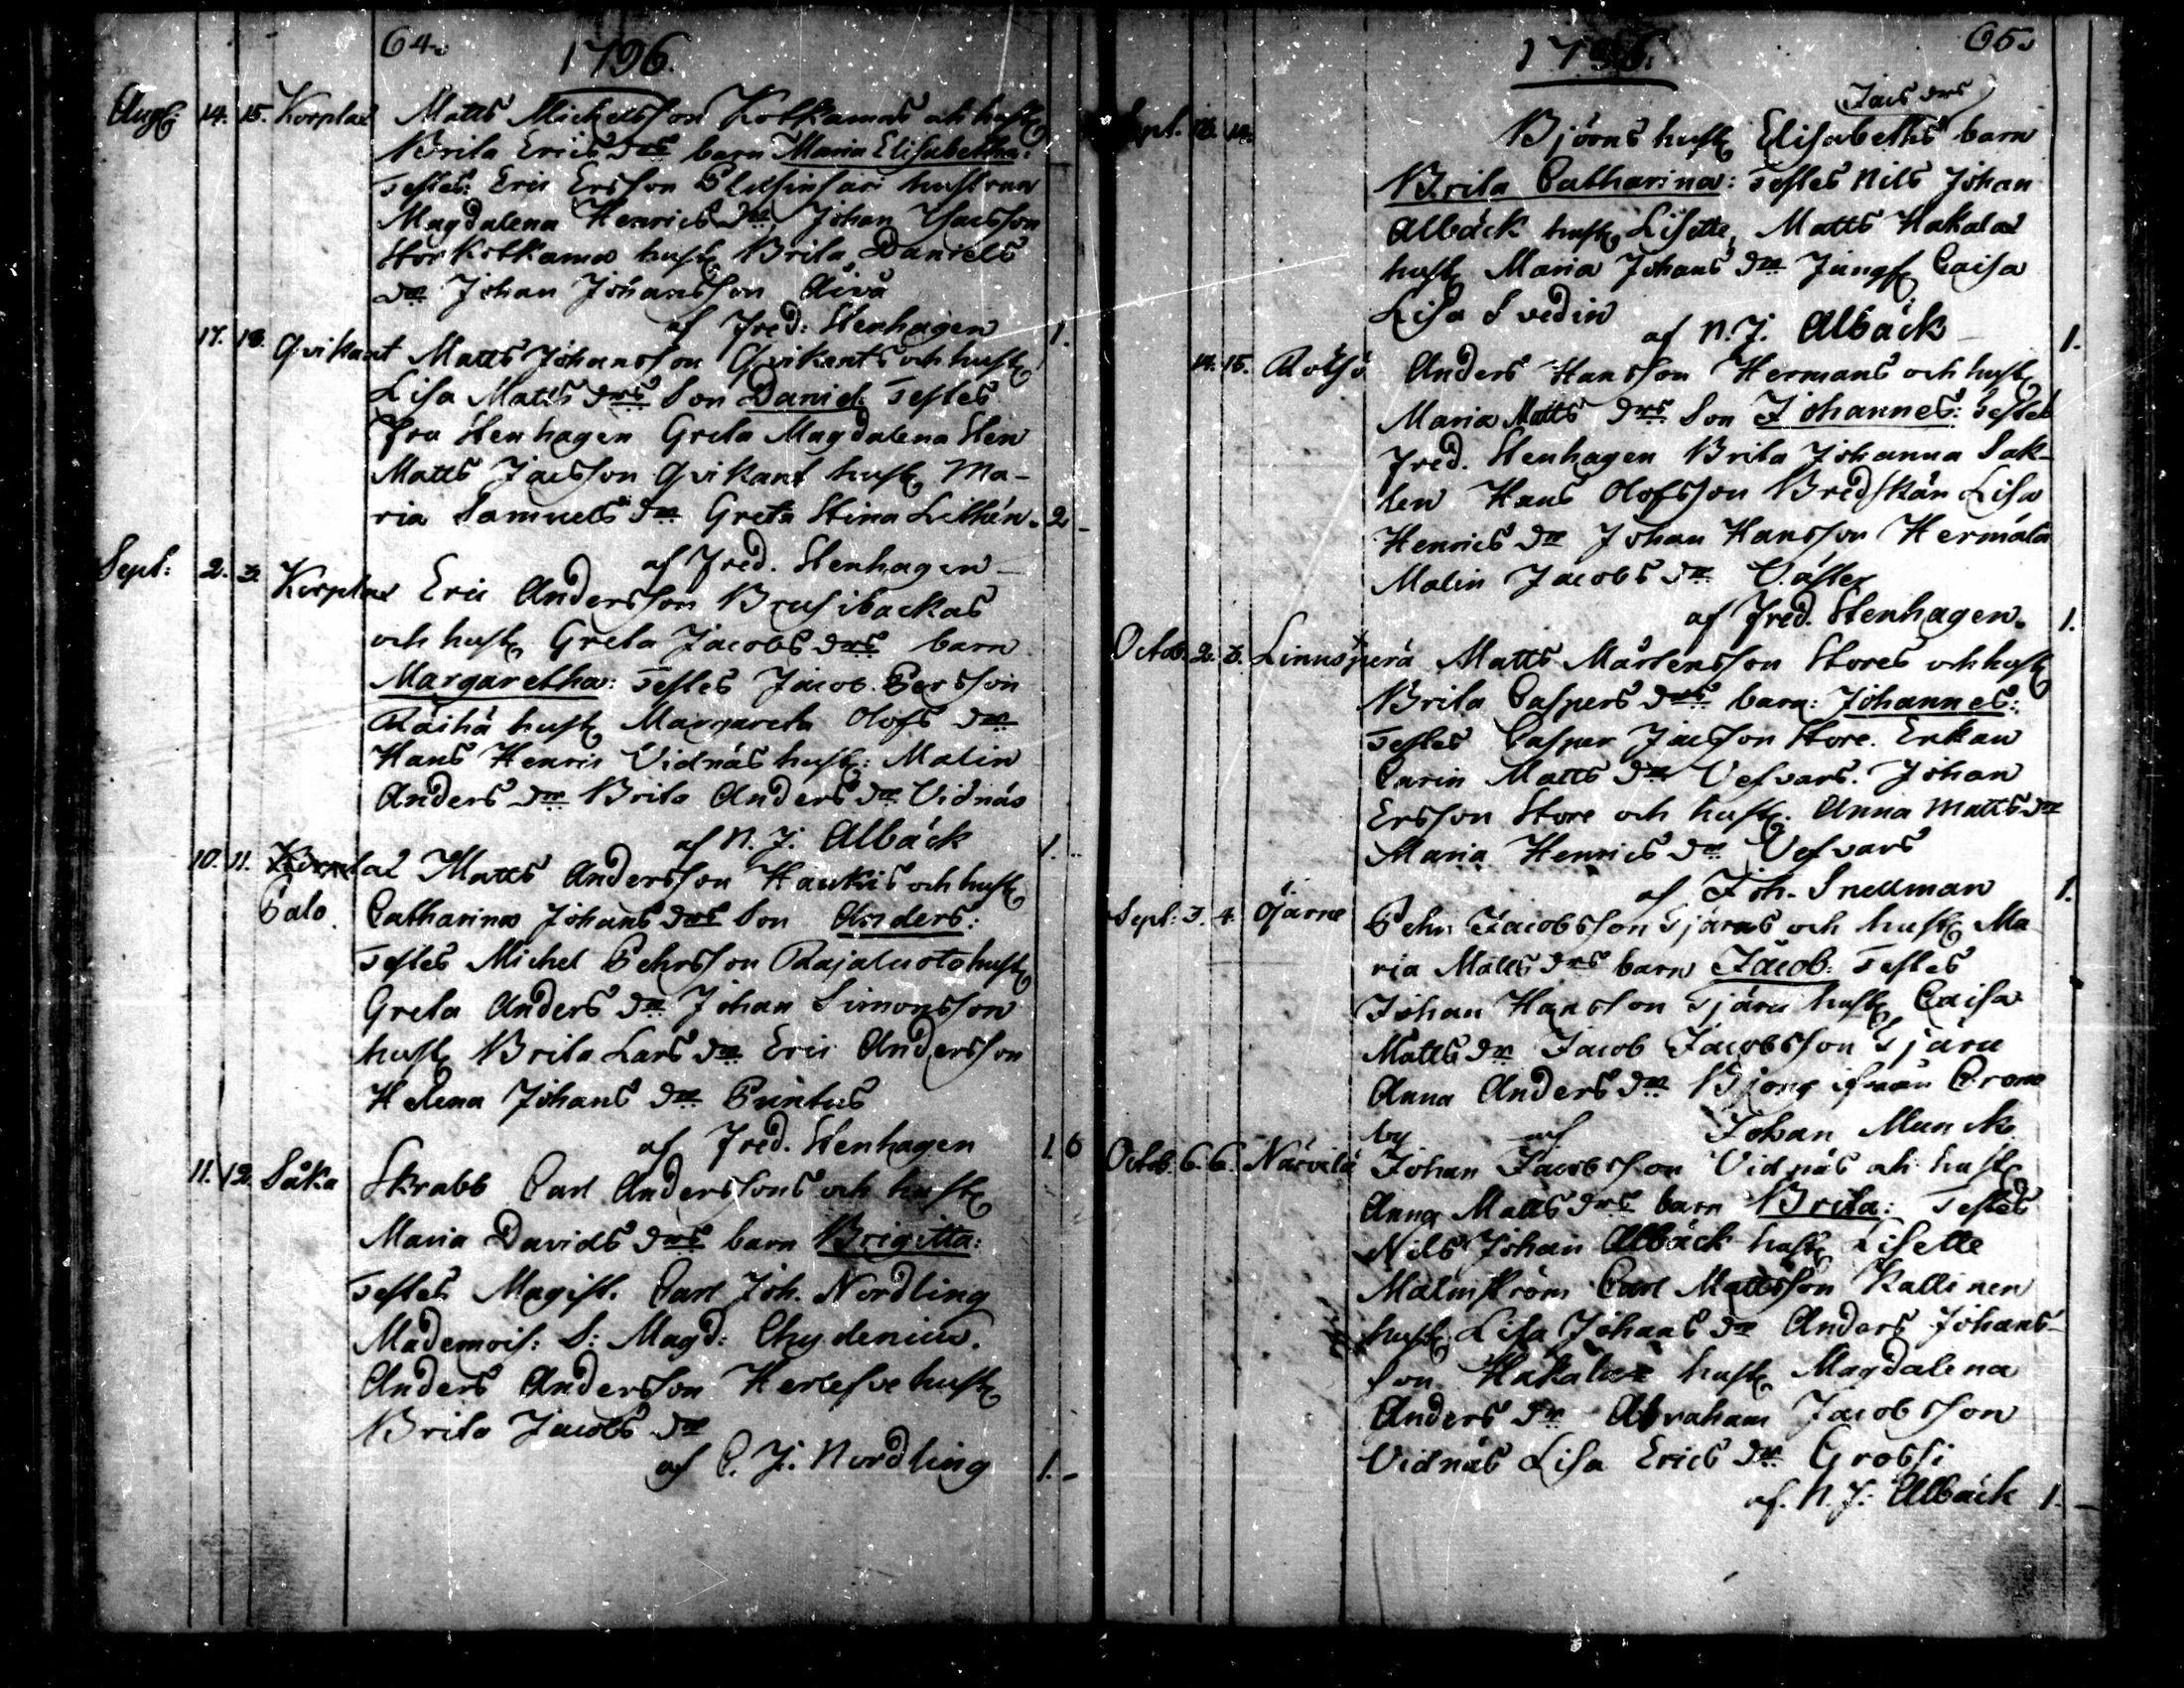 64.
1796.
Aug: 14. 15. Korplax Matts Michelsson Kotkamas och hustr
Brita Erics drs barn Maria Elisabetha:
Testes: Eric Ersson hustrun
Magdalena Henrics dr Johan Isacsson
Storkotkama hustr Brita Daniels
dr Johan Johansson Aivå
af Fred: Stenhagen 1.
17. 18. Qvikant Matts Johansson Qvikants och hustr
Lisa Matts drs Son Daniel Testes
Fru Stenhagen Greta Magdalena Sten
Matts Jacsson Qvikant hustr Ma-
ria Samuels dr Greta Stina Lithén. 2 -
af Fred. Stenhagen -
Sept: 2. 3. Korplax Eric Andersson Brusibackas
och hustr Greta Jacobs drs barn
Margaretha: Testes Jacob Persson
Räihä hustr Margareta Olofs dr
Hans Henric Vidnäs hustr: Malin
Anders dr Brita Anders dr Vidnäs
af N. J. Albäck 1. -
10. 11. Korplax Matts Andersson Haukis och hustr
Palo. Catharina Johans drs Son Anders:
Testes Michel Pehrsson Rajaluoto hustr
Greta Anders dr Johan Simonsson
hustr Brita Lars dr Eric Andersson
Helena Johans dr Puntus
af Fred. Stenhagen 1. 6
11. 12. Såka Skrabb Carl Anderssons och hustr
Maria Davids drs barn Brigitta:
Testes Magist. Carl Joh. Nordling
Mademois: S: Magd: Chydenius.
Anders Andersson Herlefve hustr
Brita Jacobs dr
af C. J. Nordling 1. -
65.
1796.
Jacs drs
Sept. 13. 14. Björns hustr Elisabeths barn
Brita Catharina: Testes Nils Johan
Albäck hustr Lisette, Matts Hakala
hustr Maria Johans dr Jungf Caisa
Lisa Svedin
af N. J. Albäck 1.
14. 15. Rotsö Anders Hansson Hermans och hustr
Maria Matts drs Son Johannes: Testes
Fred. Stenhagen Brita Johanna Sak-
len Hans Olofsson Bredskän Lisa
Henrics dr Johan Hansson Hermäla
Malin Jacobs dr Väster
af Fred. Stenhagen. 1.
Octob. 2. 3. Linnusperä Matts Mårtensson Stores och hustr
Brita Caspers drs barn: Johannes:
Testes Casper Jacsson Store. Enkan
Carin Matts dr Vefvars. Johan
Ersson Store och hustr. Anna Matts dr
Maria Henrics dr Vefvars
af Joh. Snellman 1.
Sept: 3. 4. Pehr Jacobsson Tjärus och hustr Ma
ria Matts drs barn Jacob: Testes
Johan Hansson Tjäru hustr Caisa
Matts dr Jacob Jacobsson Tjäru
Anna Anders dr Björg ifrån Crono
by af Johan Munck
Octob. 6. 6. Närvilä Johan Jacobsson Vidnäs och hustr
Anna Matts drs barn Brita: Testes
Nils Johan Albäck hustr Lisette
Malmström Carl Mattsson Kallinen
hustr Lisa Johans dr Anders Johans-
son Hakala hustr Magdalena
Anders dr Abraham Jacobsson
Vidnäs Lisa Erics dr Grossi
af. N. J. Albäck 1. -